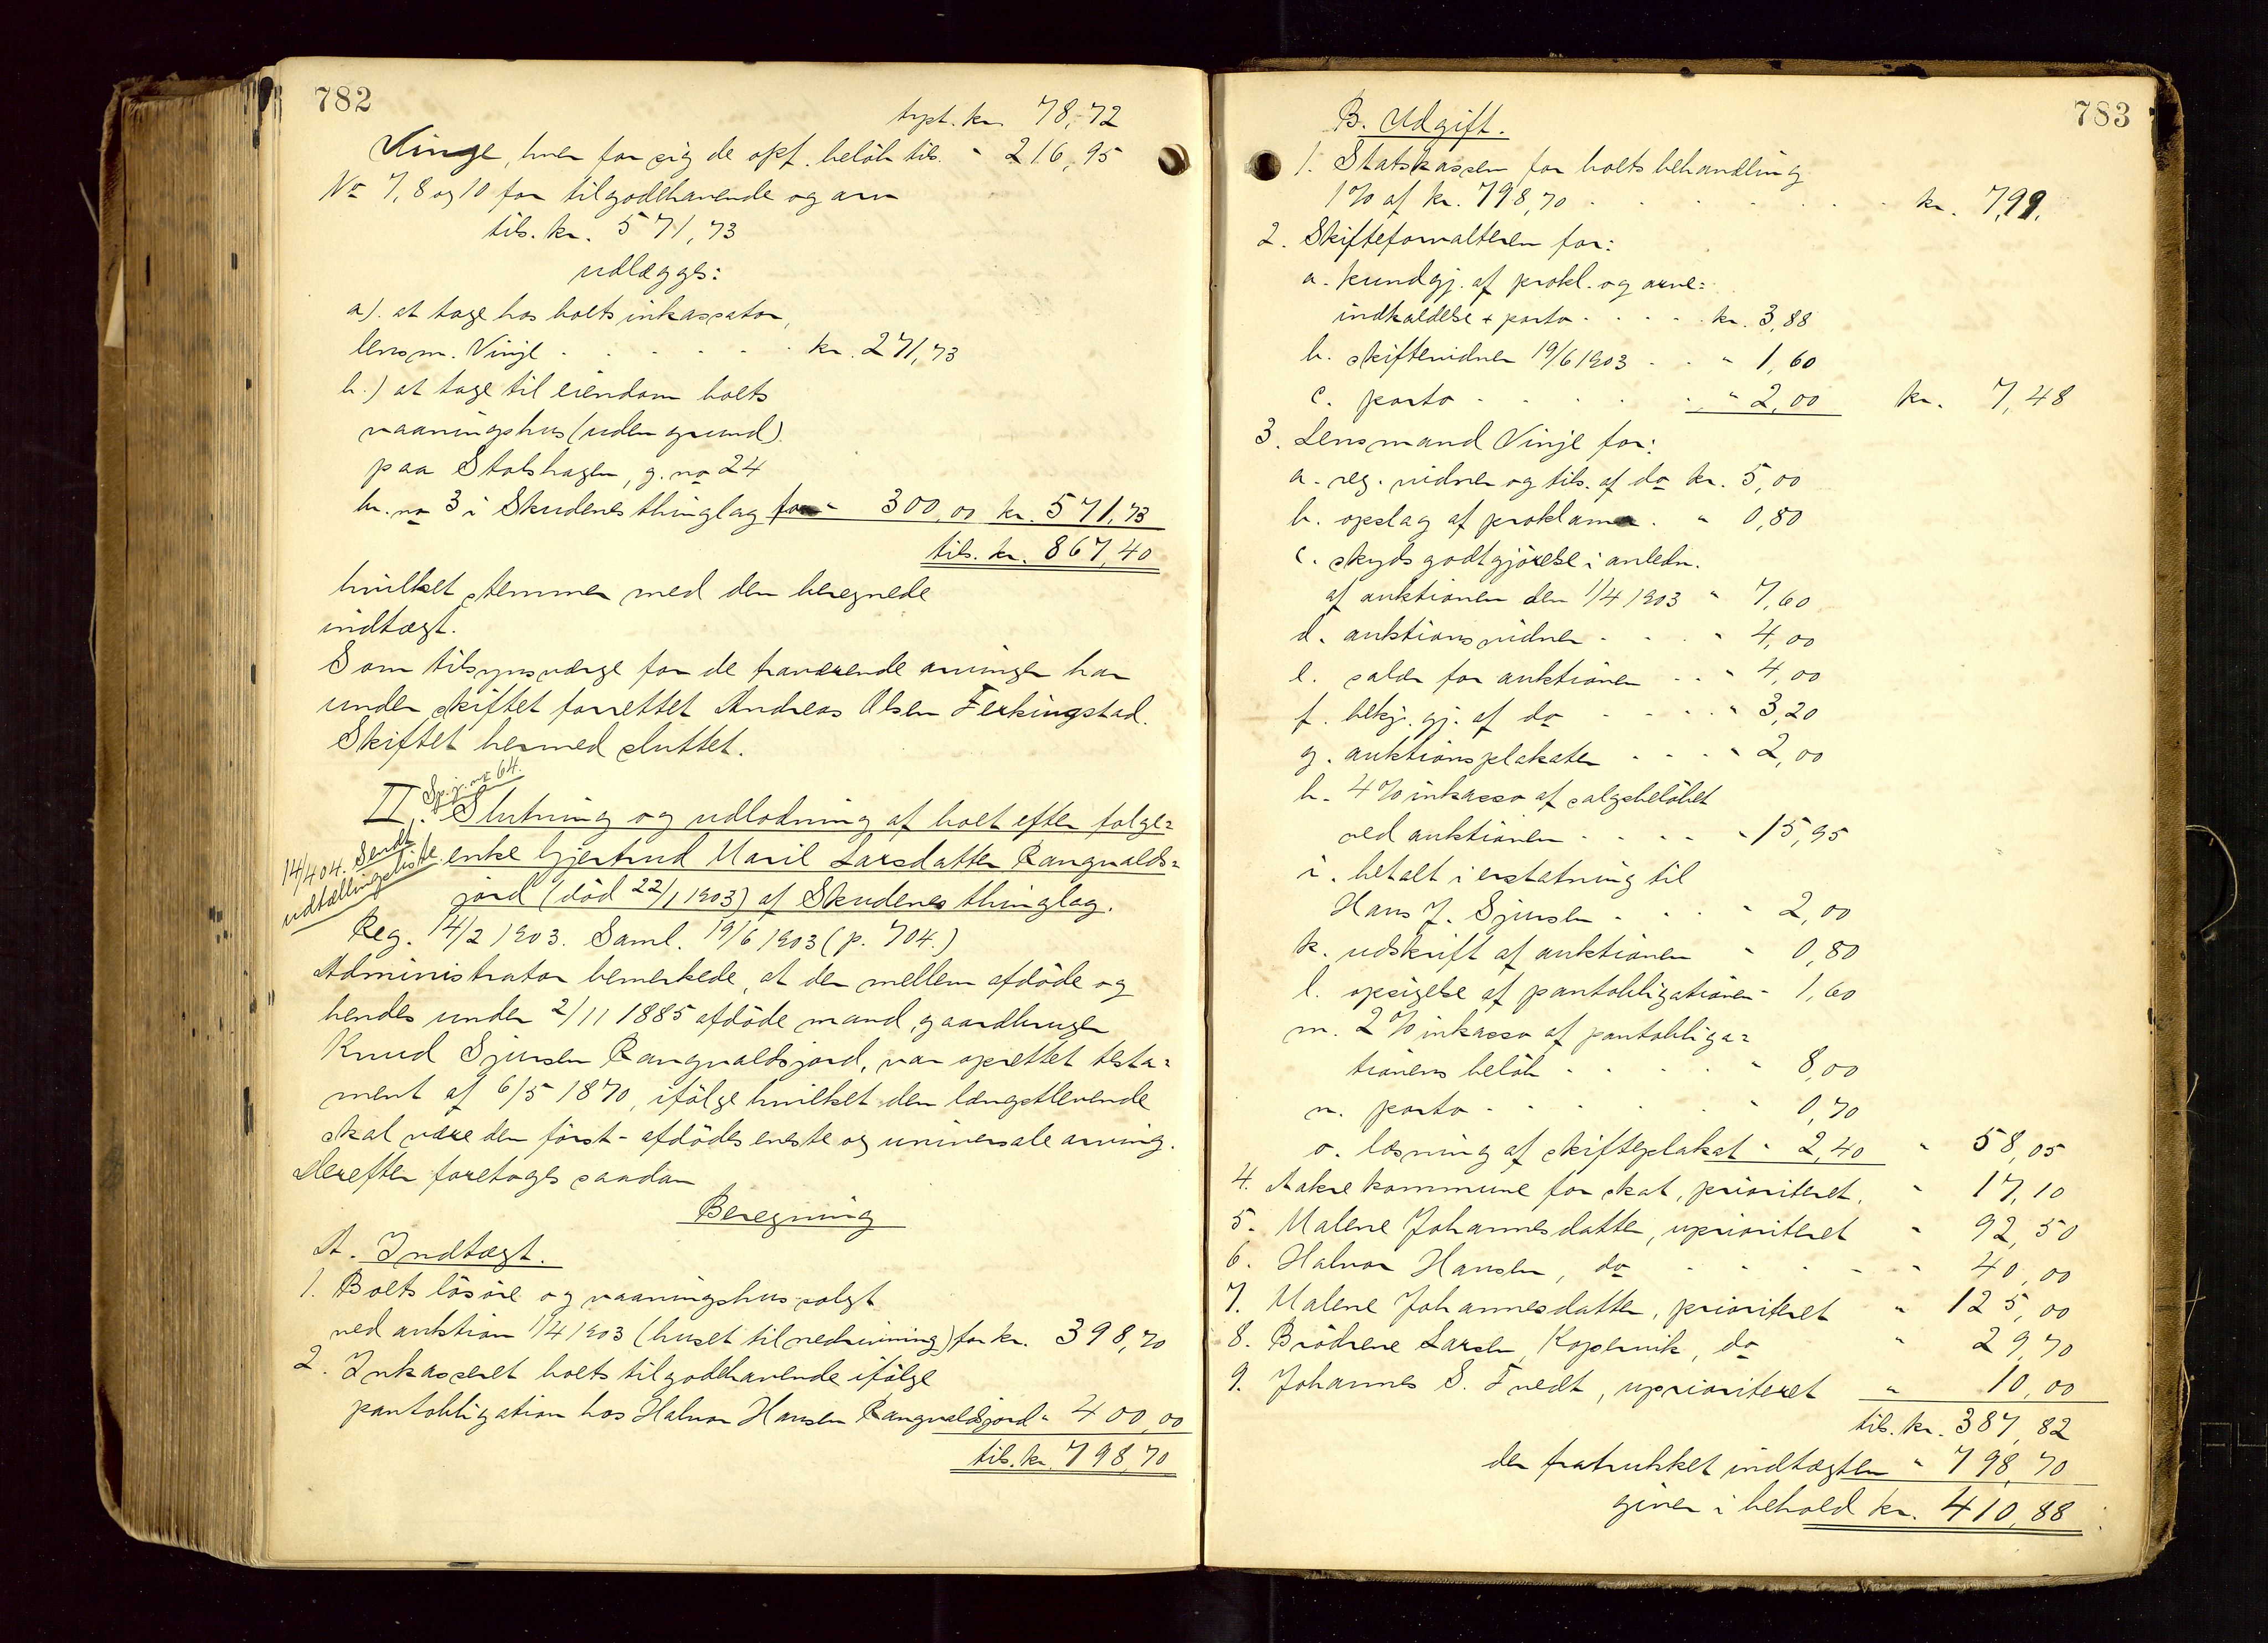 782
trpt. kr. 78,72
Vinge, hver for sig de opf. beløb tils. " 216,95
No 7, 8 og 10 for tilgodehavende og arv
tils. kr. 571,73
udlægges:
a). at tage hos boets inkassator,
lensm. Vinje . . . . . . kr. 271,73
b.) at tage til eiendom boets
vaaningshus (uden grund)
paa Stolshagen, g. no 24
br. no 3 i Skudenes thinglag for " 300,00 kr. 571,73
tils. kr. 867,40
hvilket stemmer med den beregnede
indtægt.
Som tilsynsværge for de fraværende arvinger har
under skiftet forrettet Andreas Olsen Ferkingstad.
Skiftet hermed sluttet.
Sp. j. no 64.
II. Slutning og udlodning af boet efter følge=
14/4 04. Sendt
udtællingsliste.
enke Gjertrud Maril Larsdatter Rangvalds=
jord (død 22/1 1903) af Skudenes thinglag.
Reg. 14/2 1903. Saml. 19/6 1903 (p. 704.)
Administrator bemerkede, at der mellem afdøde og
hendes under 2/11 1885 afdøde mand, gaardbruger
Knud Sjursen Rangvaldsjord, var oprettet testa=
ment af 6/5 1870, ifølge hvilket den længstlevende
skal være den først-afdødes eneste og universale arving.
Derefter foretoges saadan
Beregning
A. Indtægt.
1. Boets løsøre og vaaningshus solgt
ved auktion 1/4 1903 (huset til nedrivning) for kr. 398,70
2. Inkasseret boets tilgodehavende ifølge
pantobligation hos Halvor Hansen Rangvaldsjord " 400,00
tils. kr. 798,70
783
B. Udgift.
1. Statskassen for boets behandling
1% af kr. 798,70 . . . . . . . kr. 7,99.
2. Skifteforvalteren for:
a. kundgj. af prokl. og arve=
indkaldelse + porto . . . . kr. 3,88
b. skiftevidner 19/6 1903 . . " 1,60
c. porto . . . . . " 2,00 kr. 7,48
3. Lensmand Vinje for:
a. reg. vidner og tils. af do kr. 5,00
b. opslag af proklama . " 0,80
c. skydsgodtgjørelse i anledn.
af auktionen den 1/4 1903 " 7,60
d. auktionsvidner . . . " 4,00
e. salær for auktionen . . " 4,00
f. bekj. gj. af do . . . . " 3,20
g. auktionsplakater . . . " 2,00
h. 4% inkasso af salgsbeløbet
ved auktionen . . . . " 15,95
i. betalt i erstatning til
Hans J. Sjursen . . . " 2,00
k. udskrift af auktionen " 0,80
l. opsigelse af pantobligationen " 1,60
m. 2% inkasso af pantobliga=
tionens beløb . . . . " 8,00
n. porto . . . . . " 0,70
o. læsning af skifteplakat " 2,40 " 58,05
4. Aakre kommune for skat, prioriteret. " 17,10
5. Malene Johannesdatter, uprioriteret " 92,50
6. Halvor Hansen, do . . . . " 40,00
7. Malene Johannesdatter, prioriteret " 125,00
8. Brødrene Larsen, Kopervik, do " 29,70
9. Johannes S. Tvedt, uprioriteret " 10,00
tils. kr. 387,82
der fratrukket indtægten " 798,70
giver i behold kr. 410,88